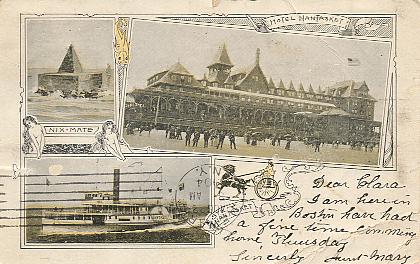 HOTEL NANTASKET
NIX-MATE
Dear Clara
I am here in
Boston have had
a fine time comming
home Thursday
Sincerly Aunt Mary